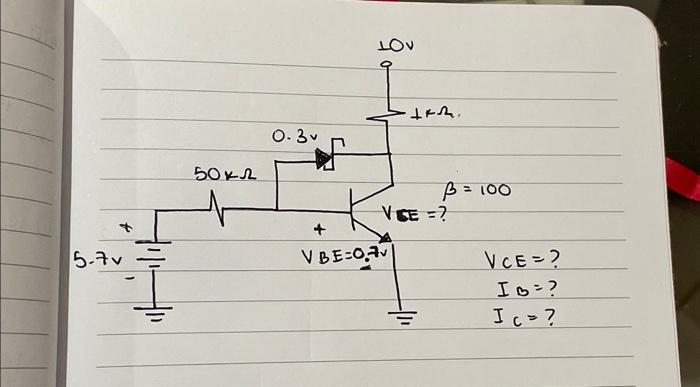 10v
1kΩ.
0.3v
50kΩ
β = 100
VCE = ?
+
+
5.7v
VBE=0.7v
-
VCE = ?
IB = ?
IC = ?